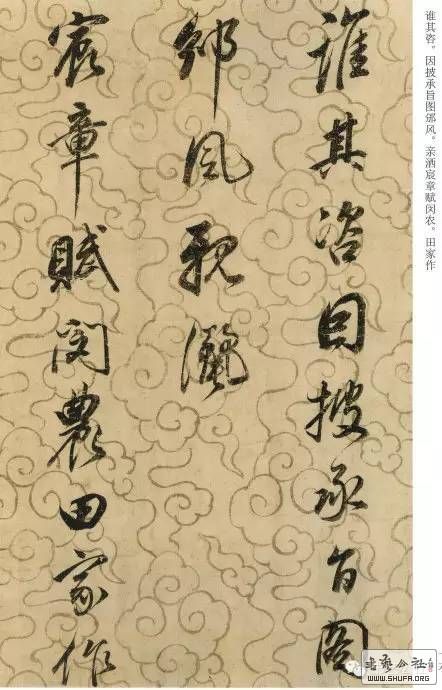 谁其咨。因披承旨图邠风。亲洒宸章赋闵农。田家作
誰其咨因披承旨圖
邠風親灑
宸章賦閔農田家作
书艺公社
WWW.SHUFA.ORG